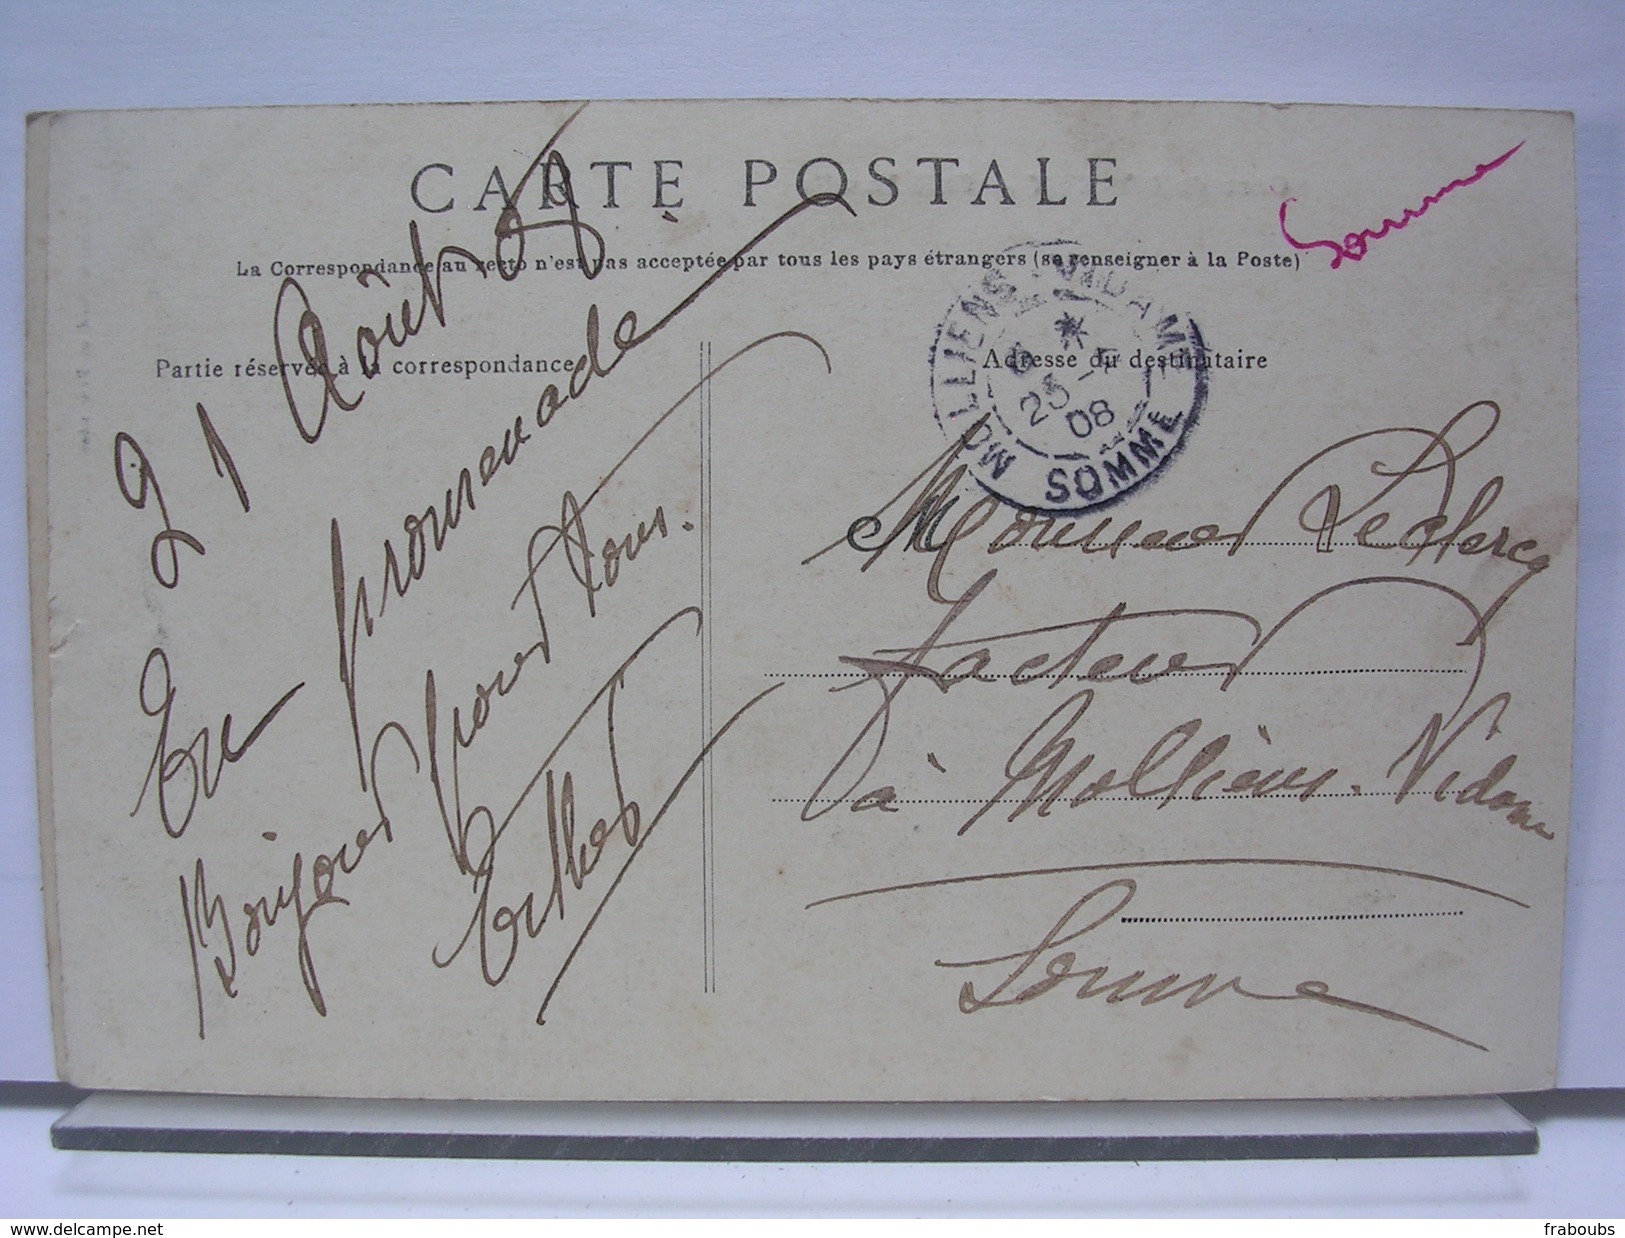 CARTE POSTALE
Somme
La Correspondance au recto n'est pas acceptée par tous les pays étrangers (se renseigner à la Poste)
Partie réservée à la correspondance
Adresse du destinataire
MOLLIENS-VIDAME
25 - 8
08
SOMME
21 Août 08
En promenade
Bonjour pour tous.
Monsieur Leclercq
facteur
à Molliens-Vidame
Somme
website : delcampe.net
fraboubs